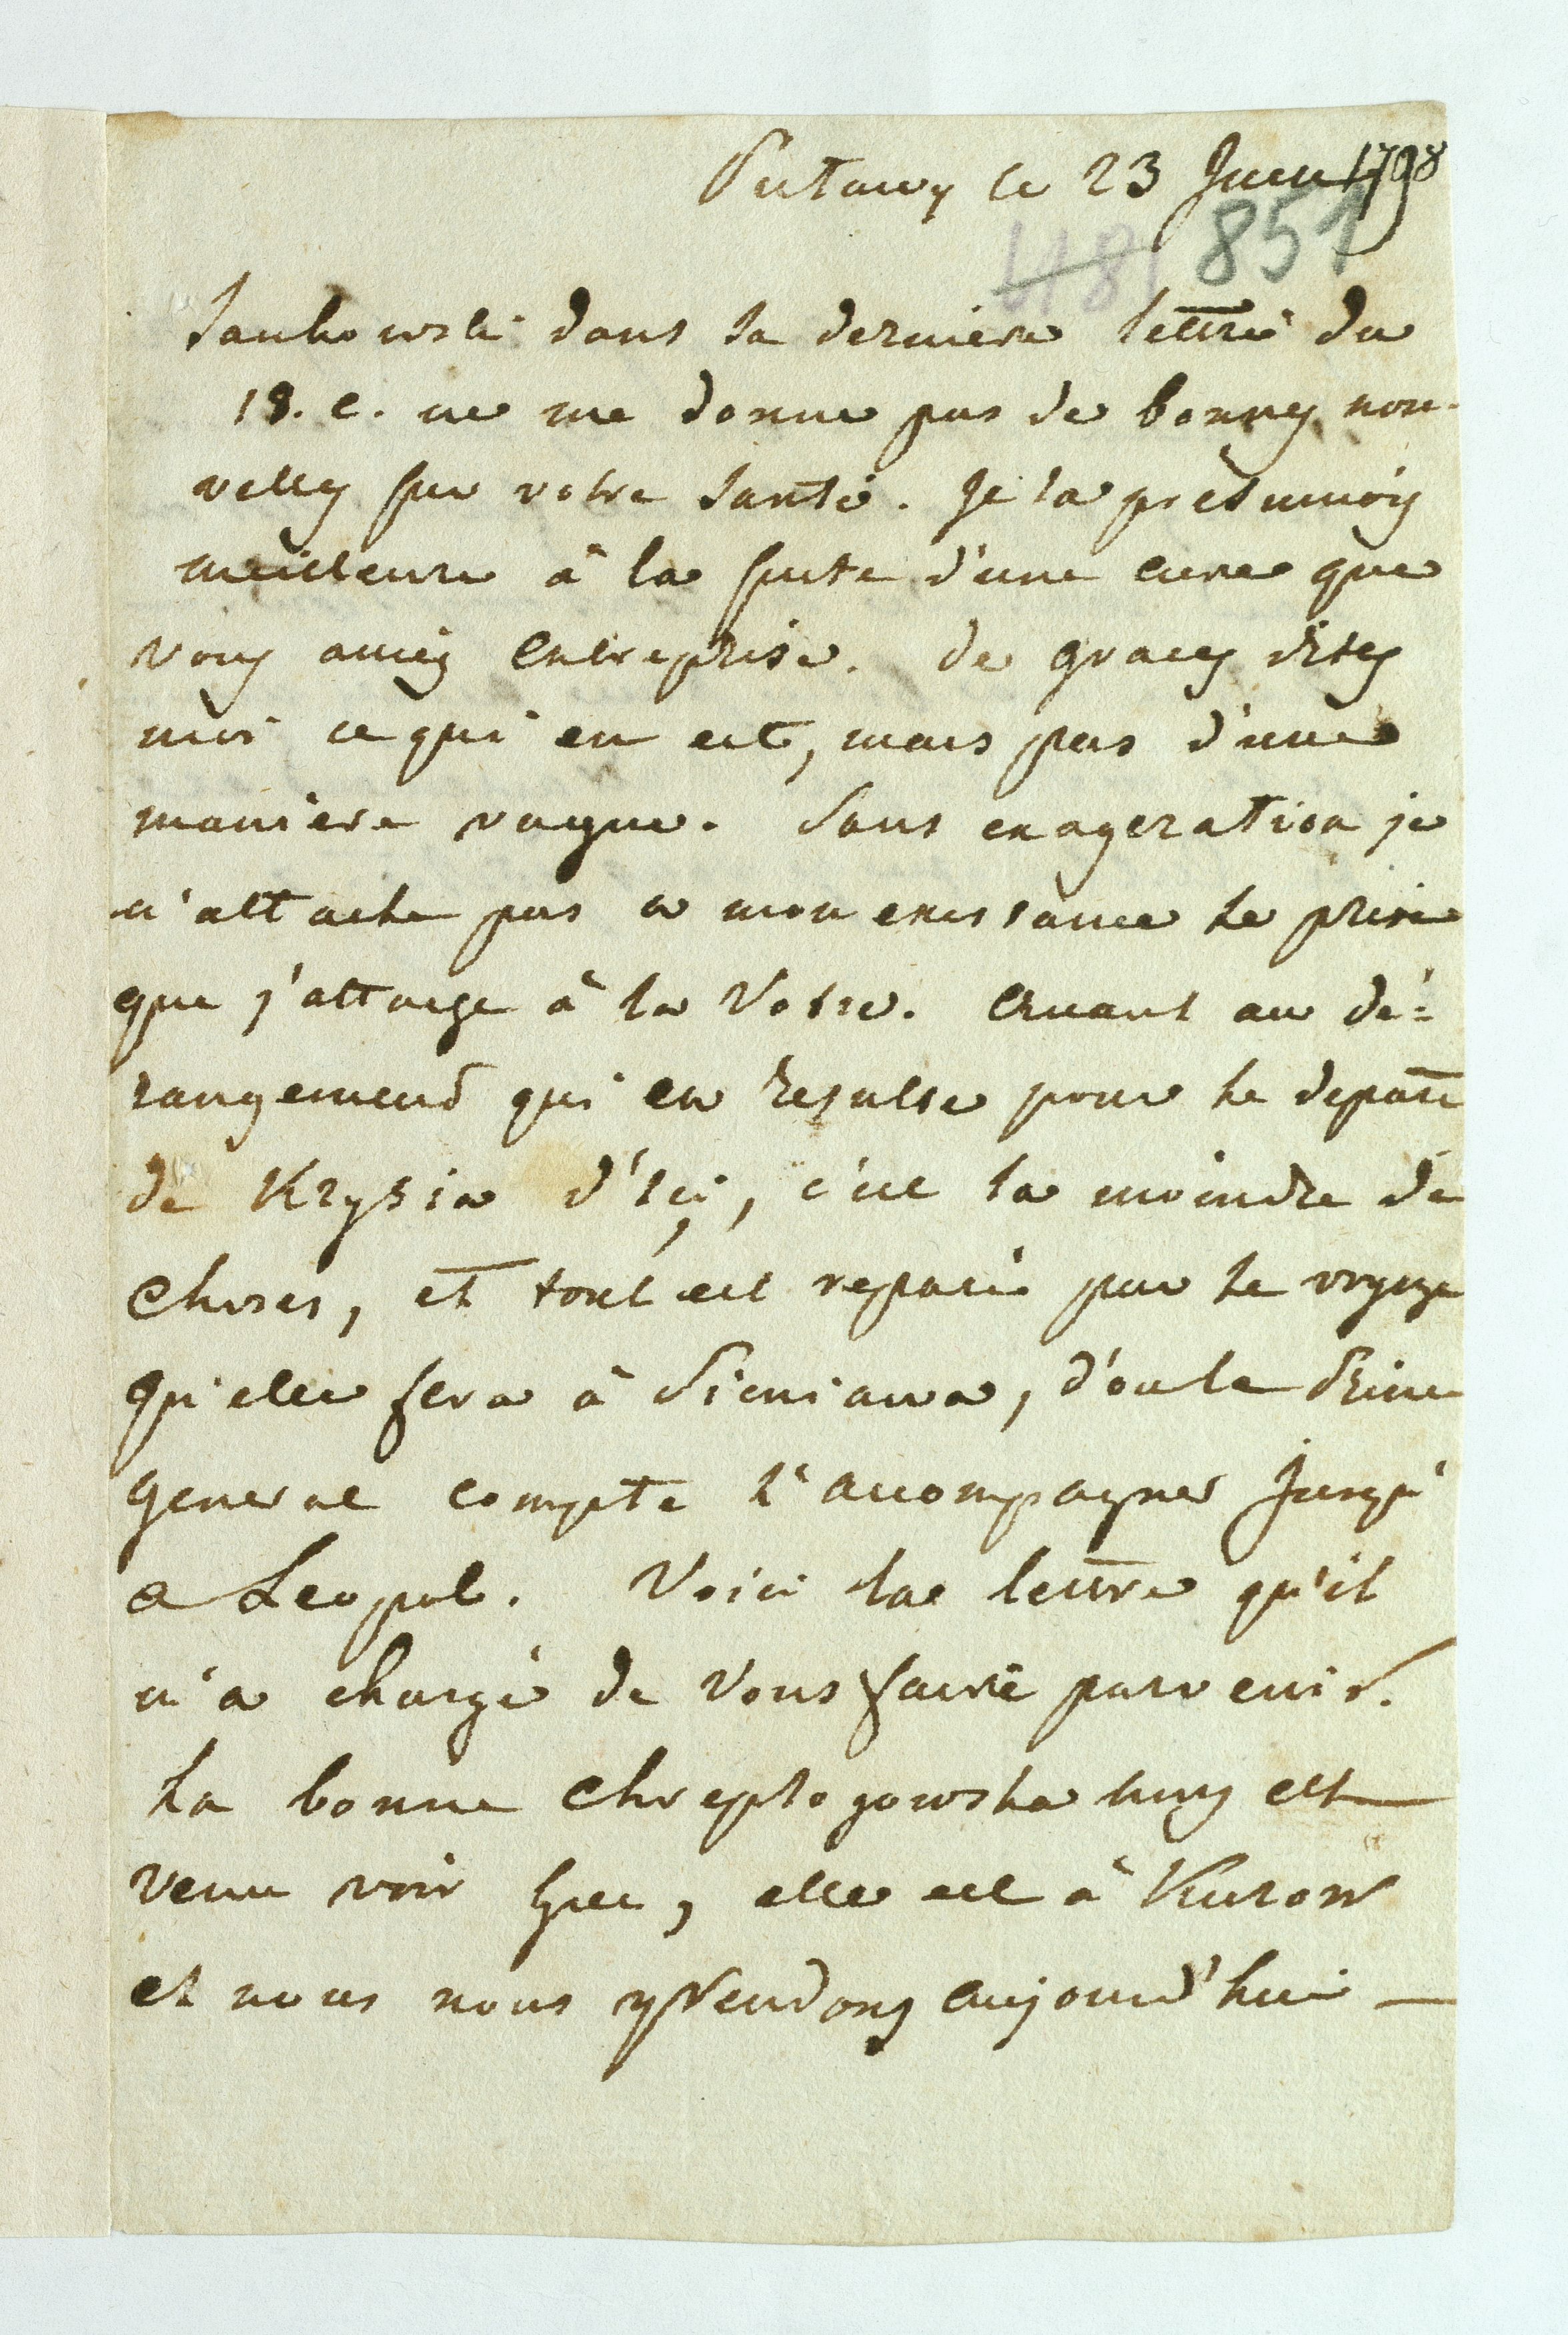 Puławy le 23 Juin 1798
481 851
Jankowski dans sa derniere lettre du
18. c. ne me donne pas de bonnes nou-
velles sur votre santé. Je la présumois
meilleure à la suite d'une cure que
vous aviez entreprise. de graces dites
moi ce qui en est, mais pas d'une
maniere vague. Sans exageration je
n'attache pas a mon existance le prix
que j'attache à la Votre. Quant au dé=
rangement qui en resulte pour le depart
de Krysia d'ici, c'est la moindre de
choses, et tout est reparé par le voyage
qu'elle fera à Sieniawa, d'ou le Prince
General compte l'accompagner jusqu'
a Leopol. Voici la lettre qu'il
m'a chargé de Vous faire parvenir.
La bonne Chreptogowska nous est
venu voir hier, elle est à Kurow
et nous nous y rendons aujourd'hui —